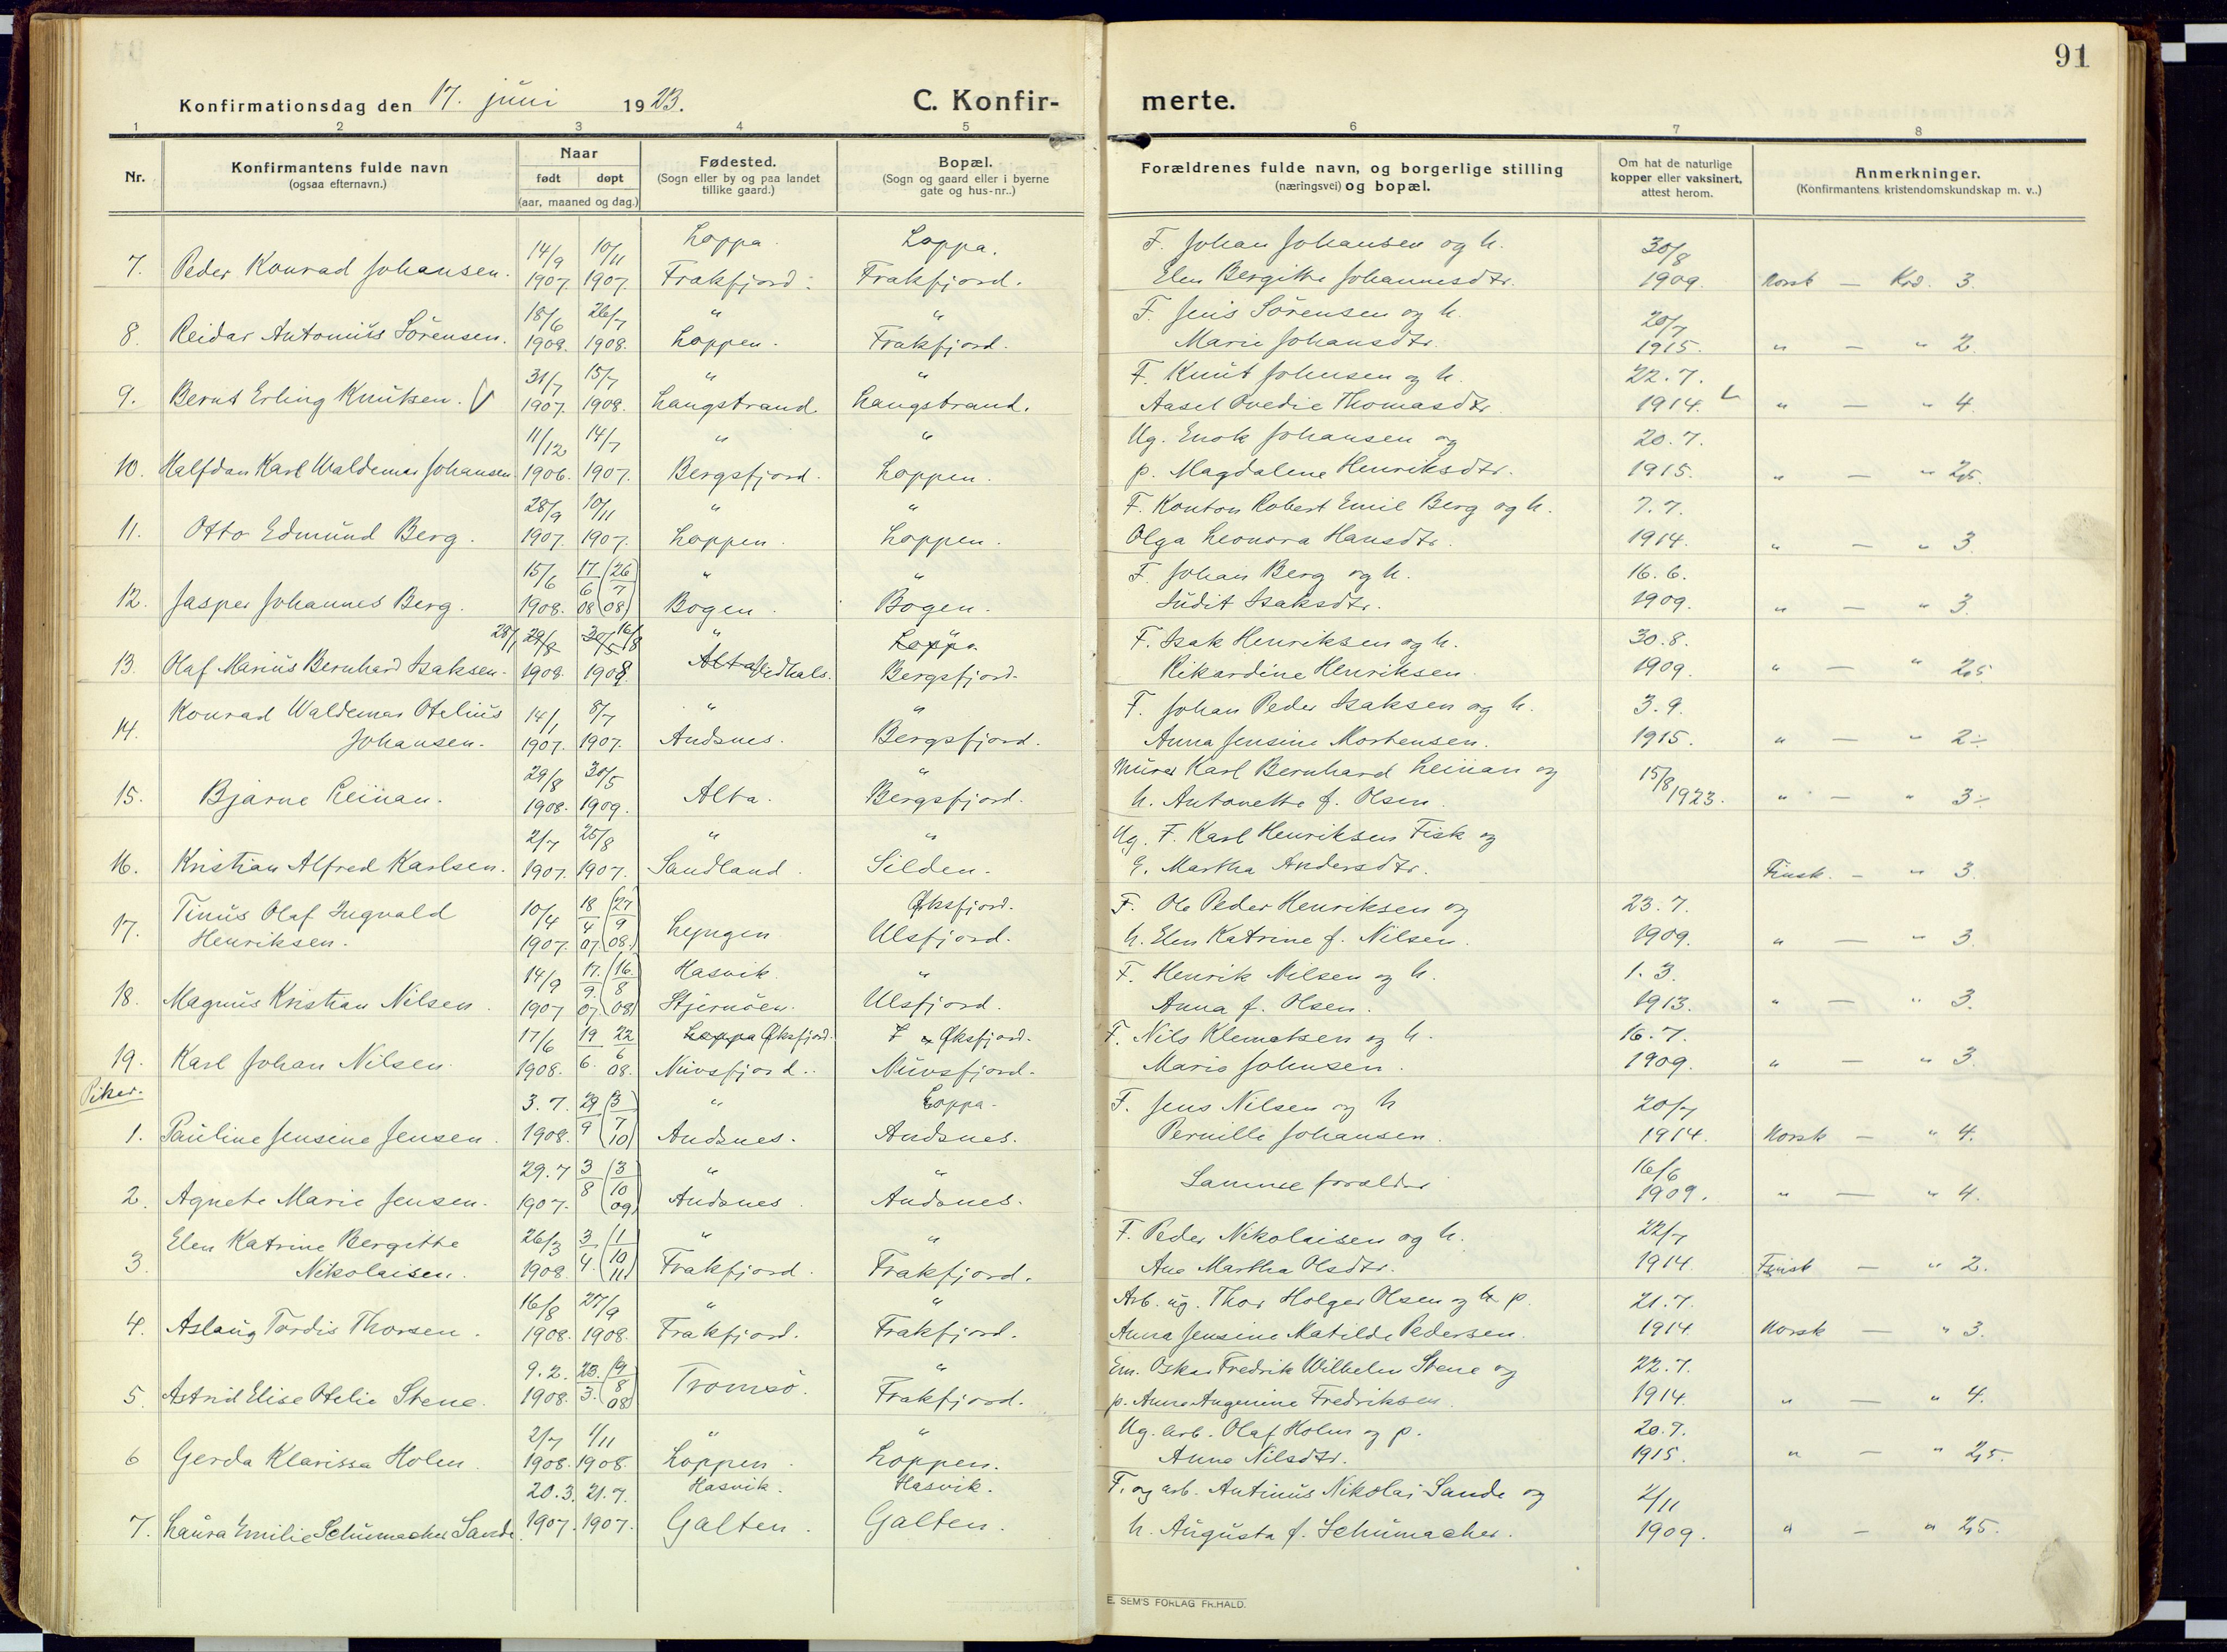 91
Konfirmationsdag den 17. juni 1923.
C. Konfir-
merte.
1 2 3 4 5 6 7 8
Nr.
Konfirmantens fulde navn
(ogsaa efternavn.)
Naar
født døpt
(aar, maaned og dag.)
Fødested.
(Sogn eller by og paa landet
tillike gaard.)
Bopæl.
(Sogn og gaard eller i byerne
gate og hus-nr..)
Forældrenes fulde navn, og borgerlige stilling
(næringsvei) og bopæl.
Om hat de naturlige
kopper eller vaksinert,
attest herom.
Anmerkninger.
(Konfirmantens kristendomskundskap m. v..)
14/9 10/11 Loppa. Loppa. F. Johan Johansen og h. 30/8
7. Peder Konrad Johansen. 1907. 1907. Frakfjord. Frakfjord. Elen Bergitte Johannesdtr. 1909. Norsk — Krd. 3.
18/6 26/7 " " F. Jens Sörensen og h. 20/7
8. Reidar Antonius Sörensen. 1908. 1908. Loppen. Frakfjord. Marie Johansdtr. 1915. " — " 2.
31/7 15/7 " " F. Knut Johnsen og h. 22.7.
9. Bernt Erling Knutsen. V 1907. 1908. Langstrand. Langstrand. Aasel Ovedie Thomasdtr. 1914. " — " 4.
11/12 14/7 " " Ug. Enok Johansen og 20.7.
10. Halfdan Karl Waldemar Johansen. 1906. 1907. Bergsfjord. Loppen. p. Magdalene Henriksdtr. 1915. " — " 2,5.
28/9 10/11 " " F. Konton Robert Emil Berg og h. 7.7.
11. Otto Edmund Berg. 1907. 1907. Loppen. Loppen. Olga Leonora Hansdtr. 1914. " — " 3.
15/6 17/6 (26/7 " " F. Johan Berg og h. 16.6.
12. Jasper Johannes Berg. 1908. 08 08) Bogen. Bogen. Judit Isaksdtr. 1909. " — " 3.
28/1 29/8 30/5 16/8 " Loppa F. Isak Henriksen og h. 30.8.
13. Olaf Marius Bernhard Isaksen. 1908. 1908. Alta Vedhals. Bergsfjord. Rikardine Henriksen. 1909. " — " 2,5
Konrad Waldemar Otelius 14/1 8/7 " " F. Johan Peder Isaksen og h. 3.9.
14. Johansen. 1907. 1907. Andsnes. Bergsfjord. Anna Jensine Mortensen. 1915. " — " 2÷
29/8 30/5 " Murer Karl Bernhard Leinan og 15/8
15. Bjarne Leinan. 1908. 1909. Alta. Bergsfjord. h. Antonette f. Olsen. 1923. " — " 3÷
2/7 25/8 " " Ug. F. Karl Henriksen Fisk og
16. Kristian Alfred Karlsen. 1907. 1907. Sandland. Silden. E. Martha Andersdtr. Finsk. — " 3.
Tinus Olaf Ingvald 10/4 18/4 (27/9 Øksfjord. F. Ole Peder Henriksen og 23.7.
17. Henriksen. 1907. 07 08.) Lyngen Ulsfjord. h. Elen Katrine f. Nilsen. 1909. " — " 3.
14/9 17./9. (16./8 Hasvik. " F. Henrik Nilsen og h. 1.3.
18. Magnus Kristian Nilsen. 1907 07 08) Stjernöen. Ulsfjord. Anna f. Olsen. 1913. " — " 3.
17/6 19 22 Loppa Øksfjord. Øksfjord. F. Nils Klemetsen og h. 16.7.
19. Karl Johan Nilsen. 1908. 6. 6 08. Nuvsfjord. Nuvsfjord. Marie Johnsen. 1909. " — " 3.
Piker.
3.7. 29 (3 " Loppa. F. Jens Nilsen og h 20/7
1. Pauline Jensine Jensen. 1908. 9 7 10) Andsnes. Andsnes. Pernille Johansen. 1914. Norsk — " 4.
29.7 3/8 (3/10 " " Samme forældre 16/6
2. Agnete Marie Jensen. 1907. 09) Andsnes. Andsnes. 1909. " — " 4.
Elen Katrine Bergitte 26/3 3/4. (1/10 " " F. Peder Nikolaisen og h. 22/7
3. Nikolaisen. 1908. 11) Frakfjord. Frakfjord. Ane Martha Olsdtr. 1914 Finsk — " 2.
16/8 27/9 " " Arb. ug. Thor Holger Olsen og h p. 21.7.
4. Aslaug Tordis Thorsen. 1908. 1908. Frakfjord. Frakfjord. Anna Jensine Matilde Pedersen. 1914. Norsk — " 3.
9.2. 23./3. (9/8 " Em. Oskar Fredrik Wilhelm Stene og 22.7.
5. Astrid Elise Otelie Stene. 1908. 08) Tromsö. Frakfjord. p. Anna Angenine Fredriksen. 1914. " — " 4.
2/7 1/11 " " Ug. arb. Olaf Holm og p. 20.7.
6 Gerda Klarissa Holm. 1908. 1908. Loppen. Loppen. Anna Nilsdtr. 1915. " — " 2,5.
20.3. 21.7. Hasvik. Hasvik. F. og arb. Antinus Nikolai Sande og 2/11
7. Laura Emilie Schumacher Sande. 1907. 1907. Galten. Galten. h. Augusta f. Schumacher. 1909. " — " 2,5.
E. SEM'S FORLAG FR.HALD.